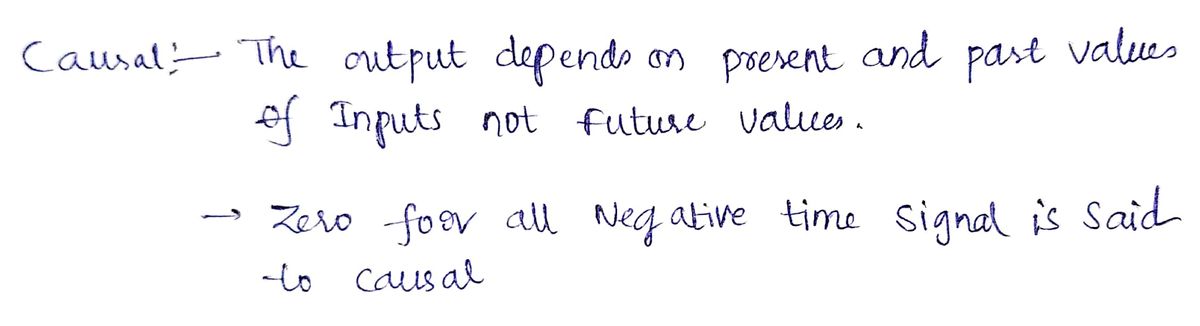 Causal:- The output depends on present and past values
of Inputs not future values.
→ Zero foor all Negative time signal is said
to causal